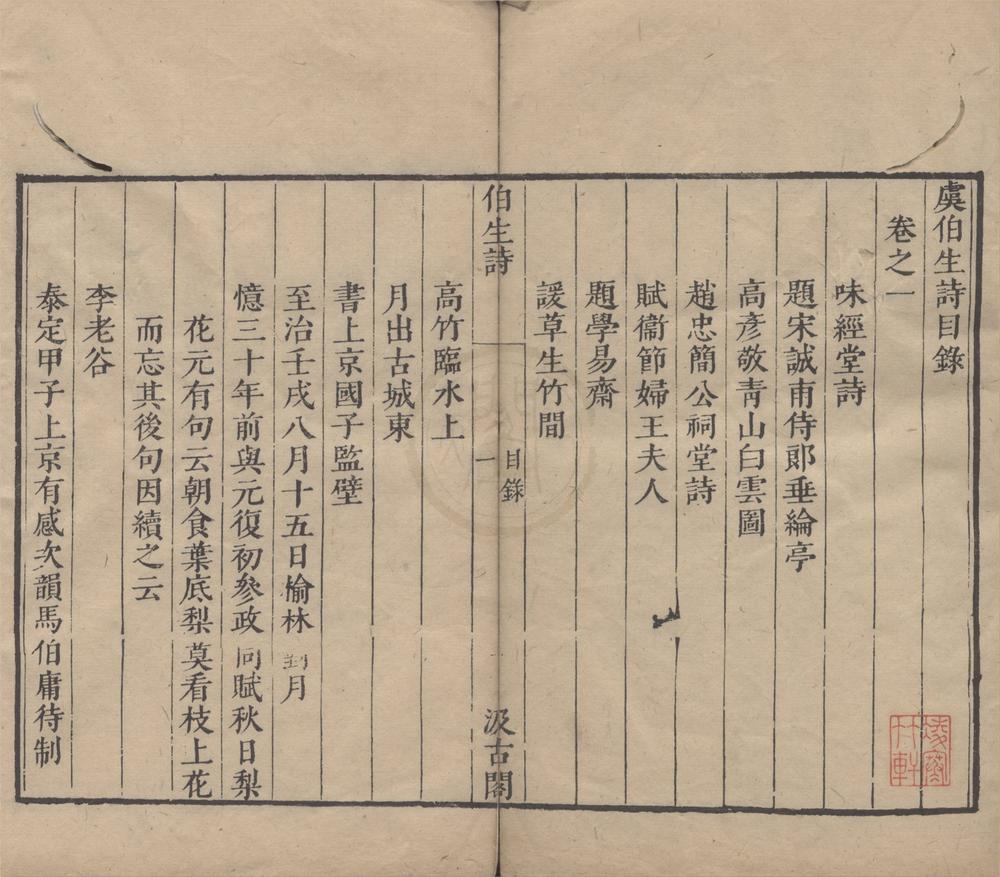 虞伯生詩目錄
卷之一
味經堂詩
題宋誠甫侍郎垂綸亭
高彥敬靑山白雲圖
趙忠簡公祠堂詩
賦衞節婦王夫人
題學易齋
諼草生竹間
伯生詩
目錄
一
汲古閣
高竹臨水上
月出古城東
書上京國子監壁
至治壬戌八月十五日榆林對月
憶三十年前與元復初參政同賦秋日梨
花元有句云朝食葉底梨莫看枝上花
而忘其後句因續之云
李老谷
泰定甲子上京有感次韻馬伯庸待制